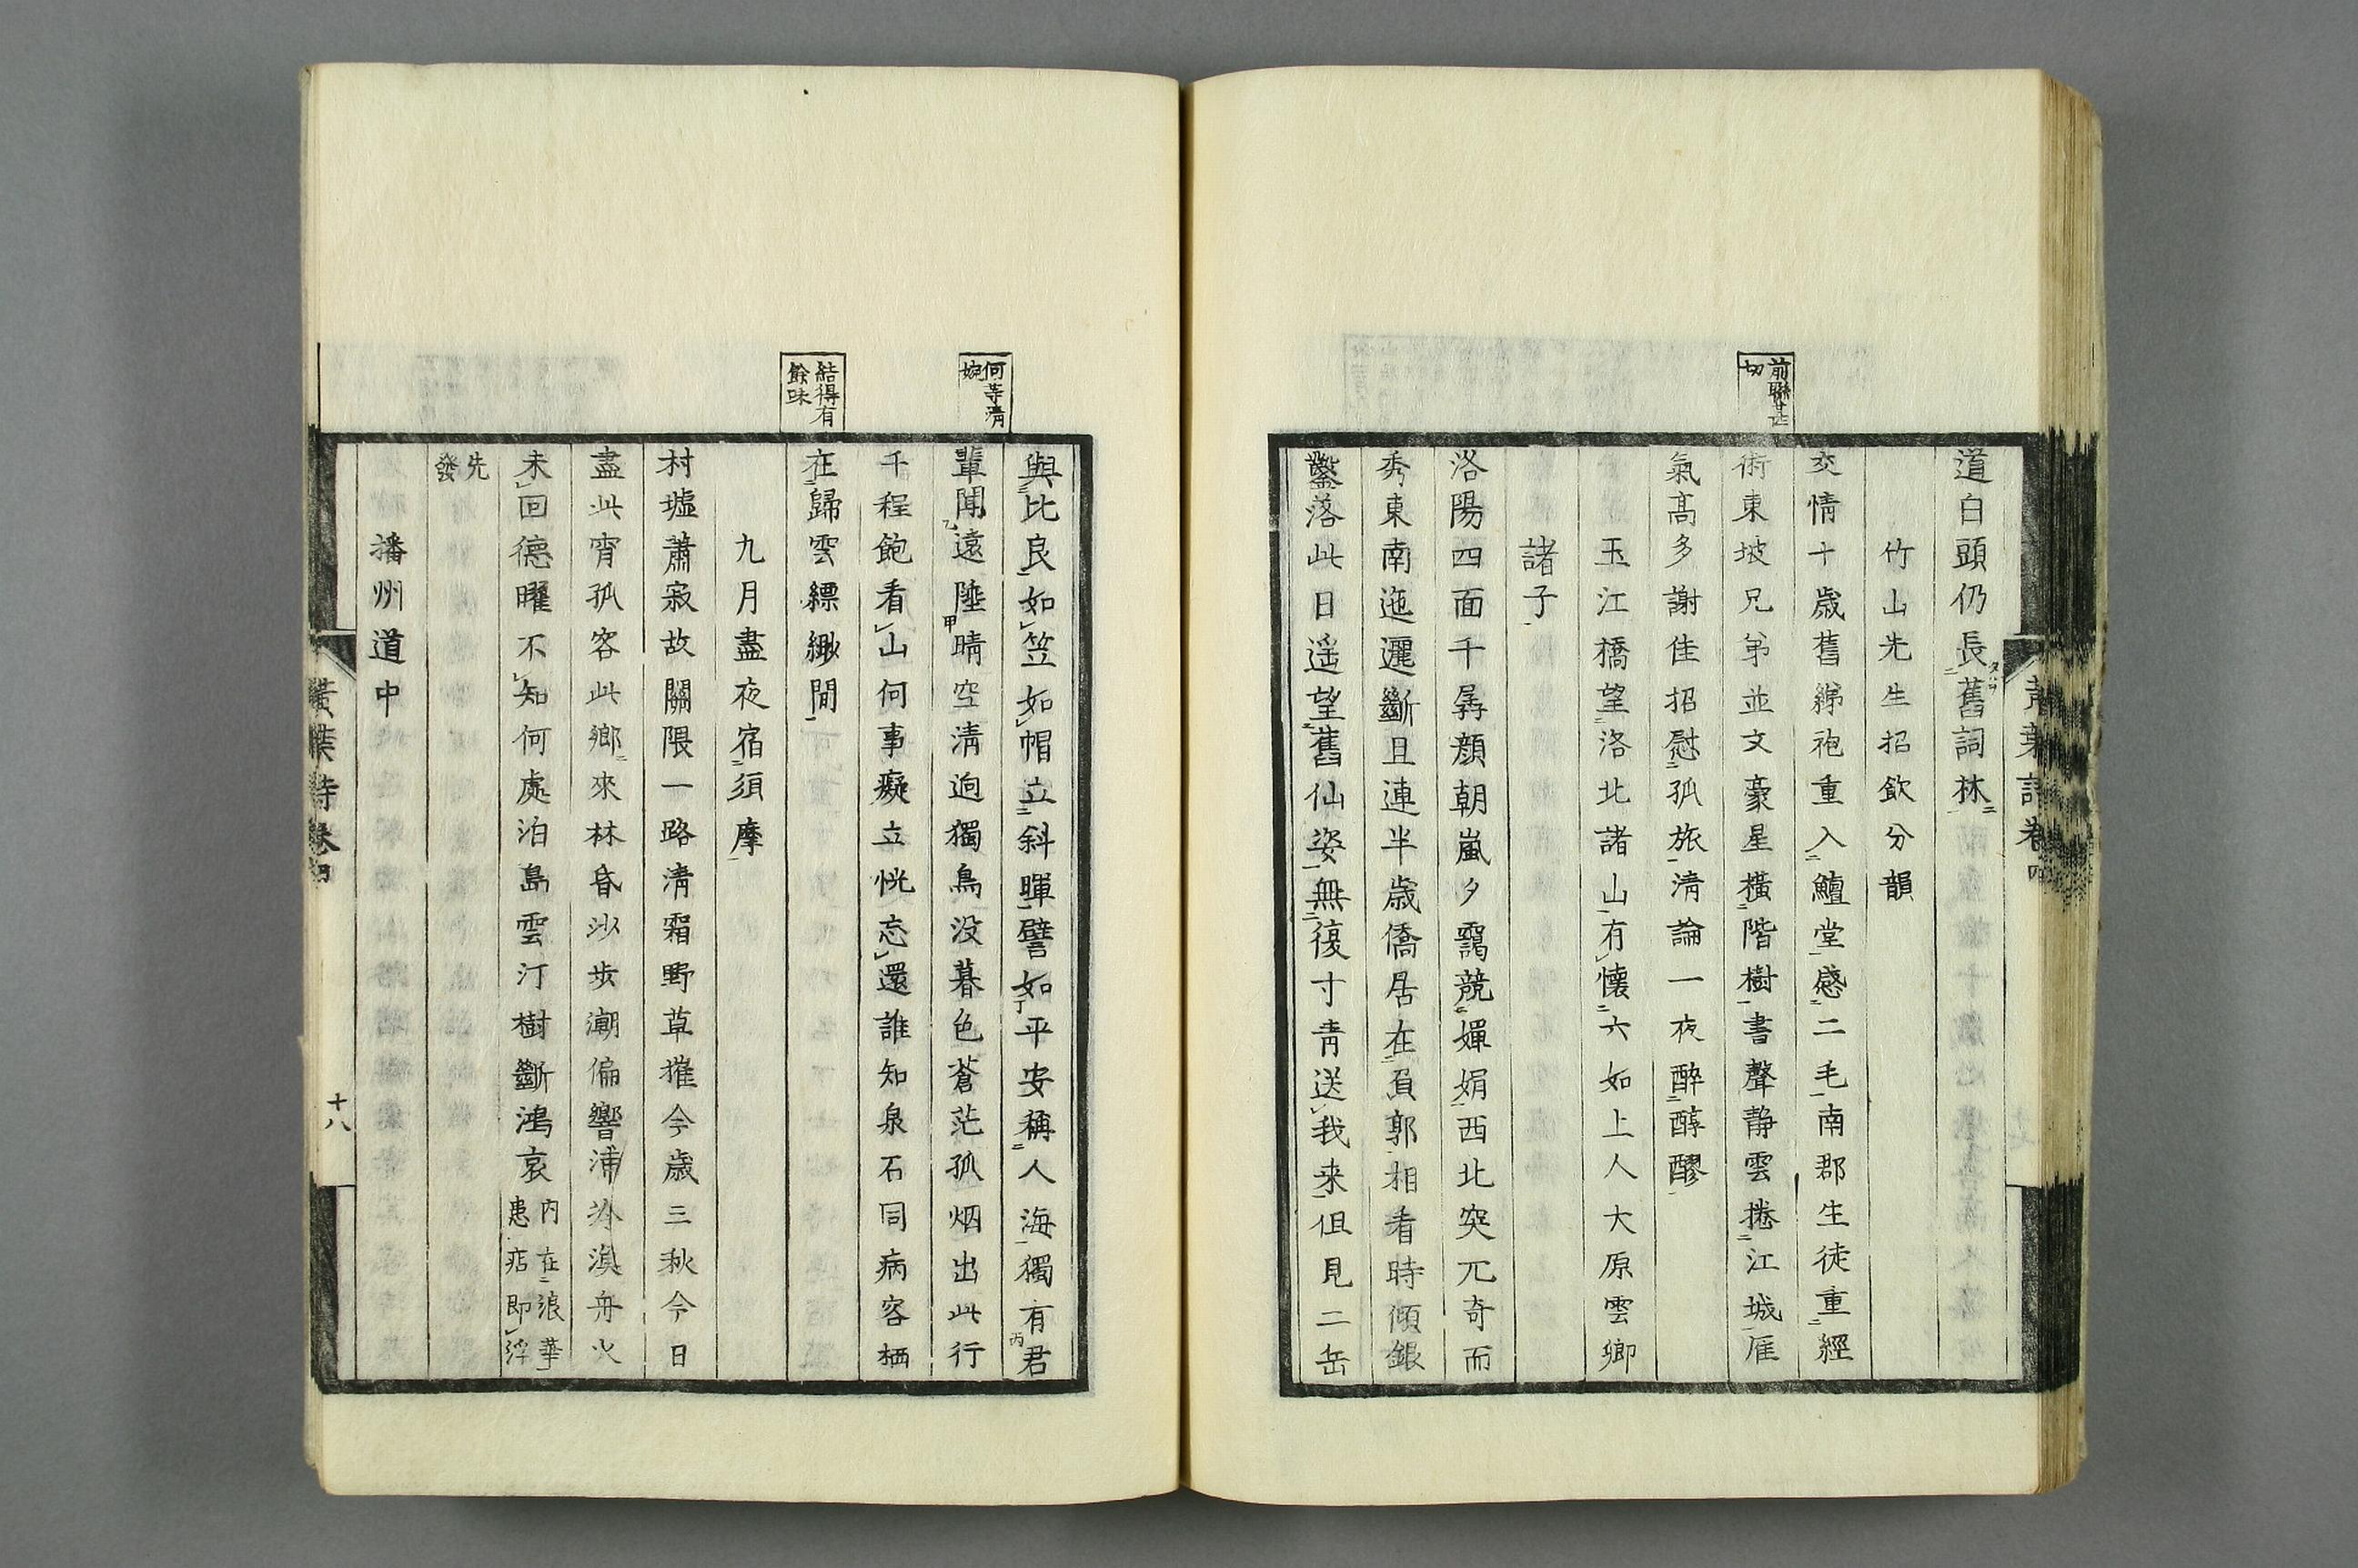 道白頭仍長舊詞林
竹山先生招飲分韻
交情十歲舊綈袍重入鱣堂感二毛南郡生徒重經
術東坡兄弟並文豪星橫階樹書聲靜雲捲江城雁
氣高多謝佳招慰孤旅清論一夜醉醇醪
玉江橋望洛北諸山有懷六如上人大原雲卿
諸子
洛陽四面千孱顏朝嵐夕靄競嬋娟西北突兀奇而
秀東南迤邐斷且連半歲僑居在負郭相看時傾銀
鑿落此日遥望舊仙姿無復寸青送我来但見二岳
前聯甘芷
切
黄葉詩卷四
與比良如笠如帽立斜暉譬如平安稱人海獨有君
輩閒遠陸晴空清逈獨鳥没暮色蒼茫孤烟出此行
千程飽看山何事癡立恍忘還誰知泉石同病客栖
在歸雲縹緲間
九月盡夜宿須摩
村墟蕭寂故關隈一路清霜野草摧今歲三秋今日
盡此宵孤客此鄉來林昏沙步潮偏響浦冷漁舟火
未回德曜不知何處泊島雲汀樹斷鴻哀
內在浪華
患痁即浮
先
發
播州道中
何等清
婉
結得有
餘味
黃葉詩卷四
十八